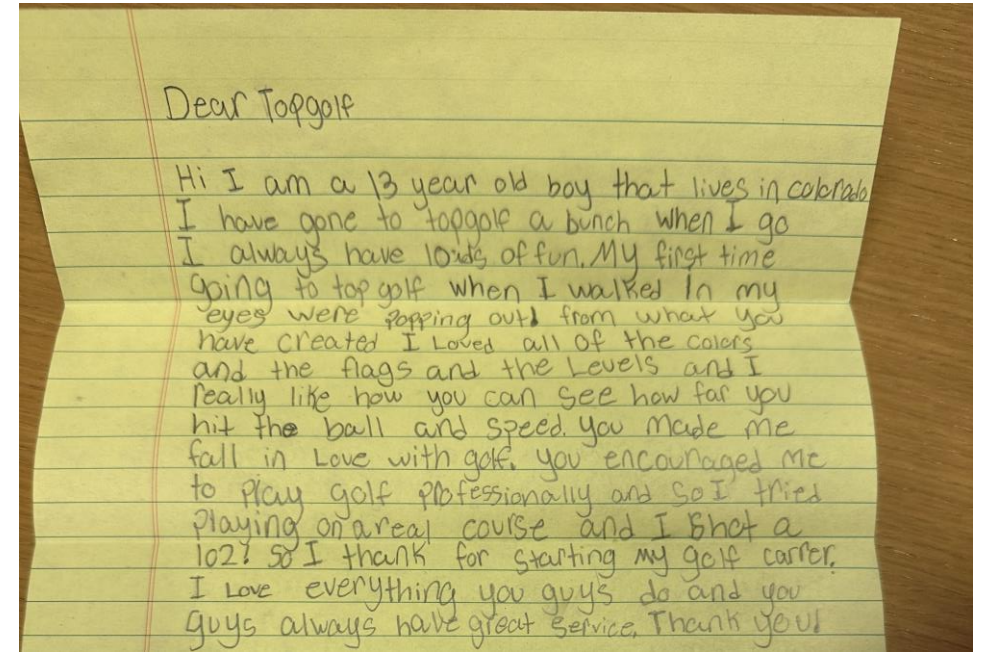 Dear Topgolf
Hi I am a 13 year old boy that lives in colorado
I have gone to topgolf a bunch when I go
I always have loads of fun. My first time
going to top golf when I walked in my
eyes were popping out! from what you
have created I Loved all of the colors
and the flags and the Levels and I
really like how you can see how far you
hit the ball and speed. you made me
fall in Love with golf. you encouraged me
to play golf professionally and so I tried
playing on a real course and I shot a
102! so I thank for starting my golf carrer.
I Love everything you guys do and you
guys always have great service. Thank you!